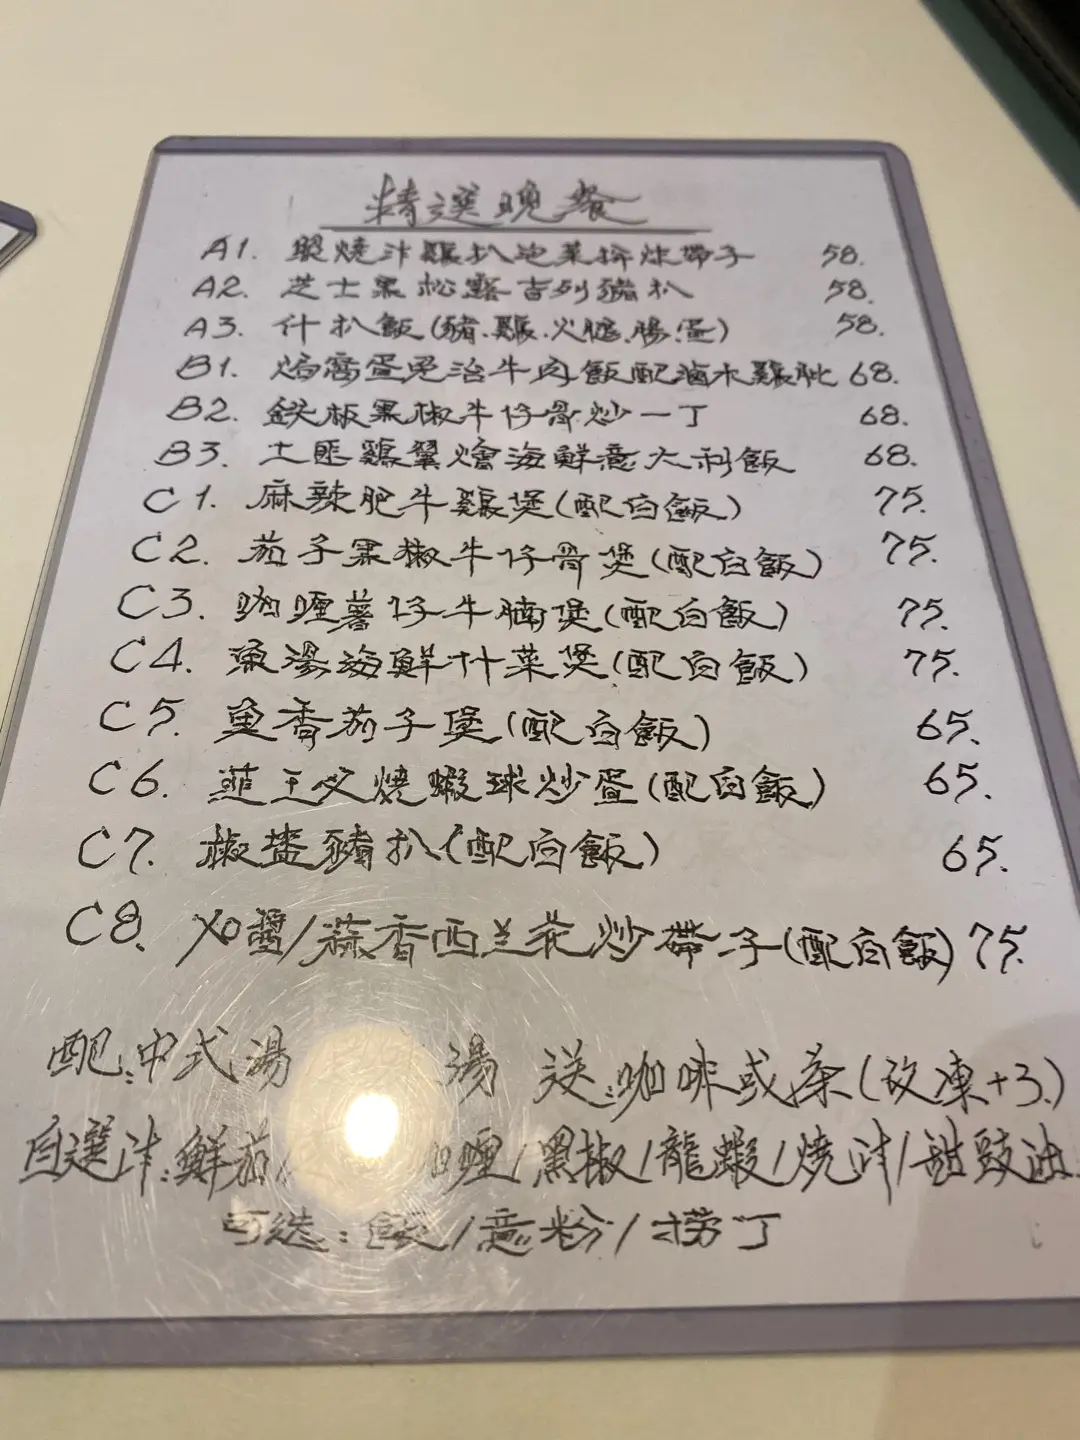 精選晚餐
A1. 燒汁雞扒泡菜拼炸帶子 58.
A2. 芝士黑松露吉列豬扒 58.
A3. 什扒飯(豬.雞.火腿.腸.蛋) 58.
B1. 焗窩蛋免治牛肉飯配滷水雞髀 68.
B2. 鉄板黑椒牛仔骨炒一丁 68.
B3. 土匪鷄翼燴海鮮意大利飯 68.
C1. 麻辣肥牛雞煲(配白飯) 75.
C2. 茄子黑椒牛仔骨煲(配白飯) 75.
C3. 咖喱薯仔牛腩煲(配白飯) 75.
C4. 魚湯海鮮什菜煲(配白飯) 75.
C5. 魚香茄子煲(配白飯) 65.
C6. 韮王叉燒蝦球炒蛋(配白飯) 65.
C7. 椒盐豬扒(配白飯) 65.
C8. XO醬/蒜香西兰花炒帶子(配白飯) 75.
配:中式湯 湯 送:咖啡或茶(改凍+3.)
自選汁:鮮茄/ 喱/黑椒/龍蝦/燒汁/甜豉油.
可选:飯/意粉/撈丁